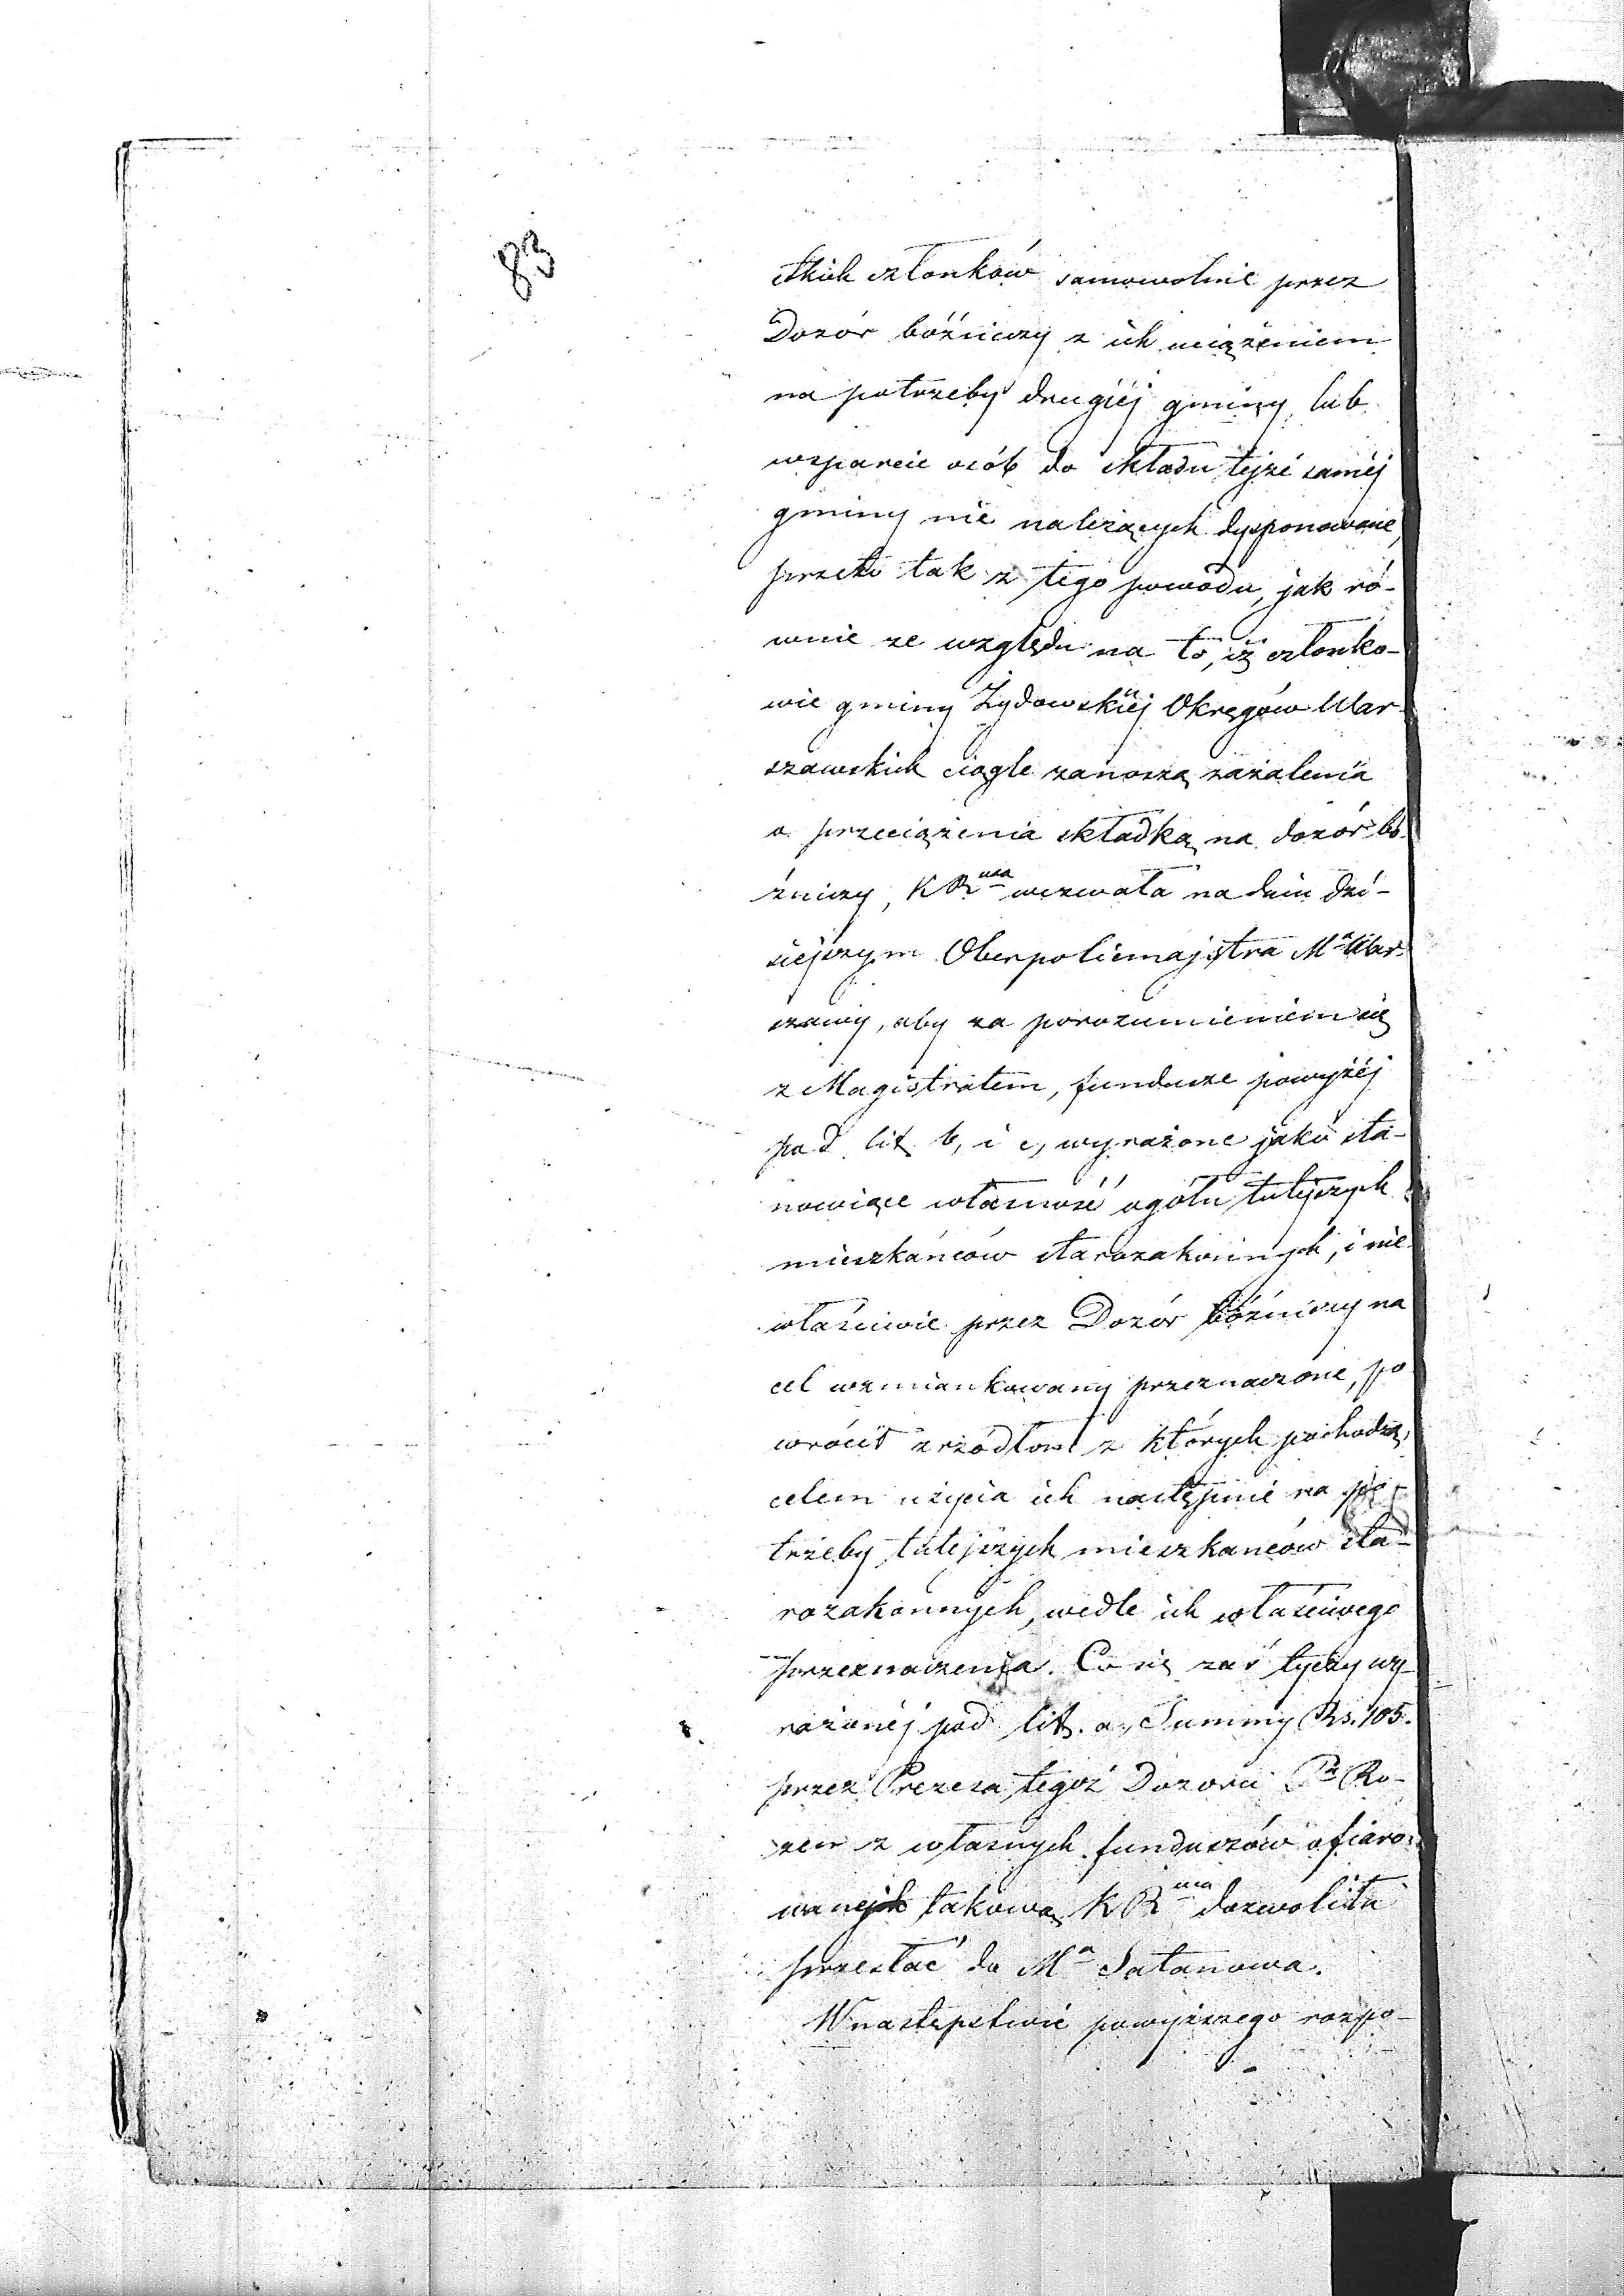 83
stkich członków samowolnie przez
Dozór bóźniczy z ich uciążeniem
na potrzeby drugiéj gminy, lub
wsparcie osób do składu tejże saméj
gminy nie należących dysponowane,
przeto tak z tego powodu, jak ró-
wnie ze względu na to, iż członko-
wie gminy Żydowskiéj Okręgów War-
szawskich ciągle zanoszą zażalenia
o przeciążenia składką na dozór bó-
źniczy, KRwa wezwała na dniu dzi-
siejszym Oberpolicmajstra Ma War-
szawy, aby za porozumieniem się
z Magistratem, fundusze powyżéj
pod lit. b, i c, wyrażone jako sta-
nowiące własność ogółu tutejszych
mieszkańców starozakonnych, i nie-
właściwie przez Dozór bóźniczy na
cel wzmiankowany przeznaczone, po
wrócił zrzódłom z których pochodzą,
celem użycia ich następnie na po-
trzeby tutejszych mieszkańców sta-
rozakonnych, wedle ich właściwego
przeznaczenia. Co się zaś tyczy wy-
rażonéj pod lit. a, Summy Rs. 105.
przez Prezesa tegoż Dozoru Pa Ro-
zen z własnych funduszów ofiaro-
wanej takową KRwa dozwoliła
przesłać do Ma Satanowa.
W następstwie powyższego rozpo-